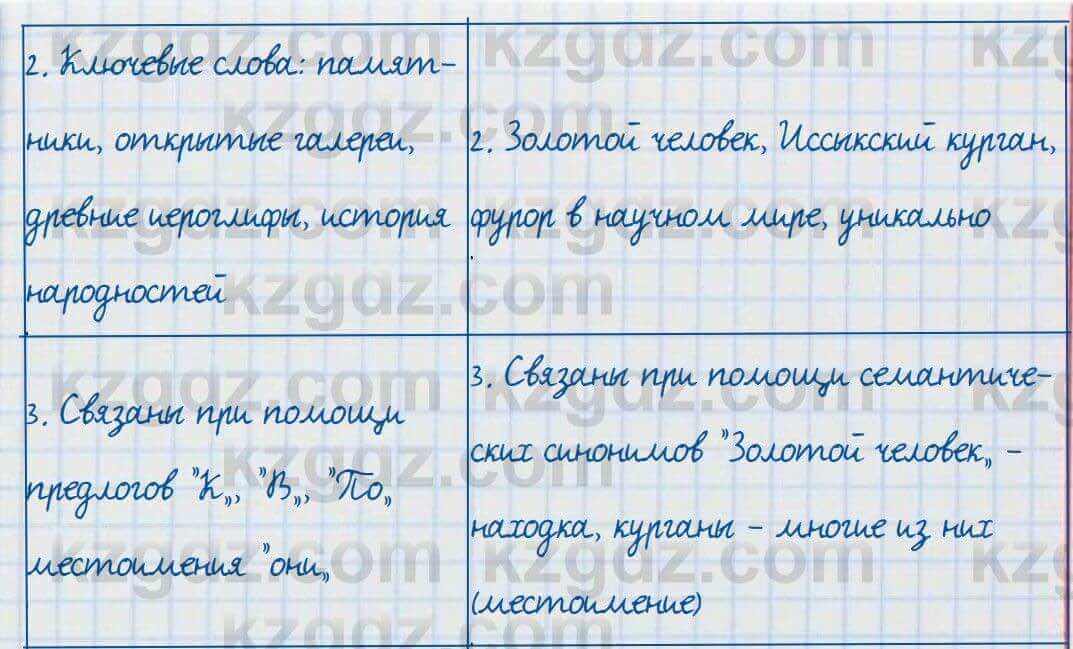 2. Ключевые слова: памят-
ники, открытые галереи,
древние иероглифы, история
народностей
2. Золотой человек, Иссыкский курган,
фурор в научном мире, уникально
3. Связаны при помощи
предлогов "К„, "В„, "По„
местоимения "они„
3. Связаны при помощи семантиче-
ских синонимов "Золотой человек„ -
находка, курганы - многие из них
(местоимение)
kzgdz.com